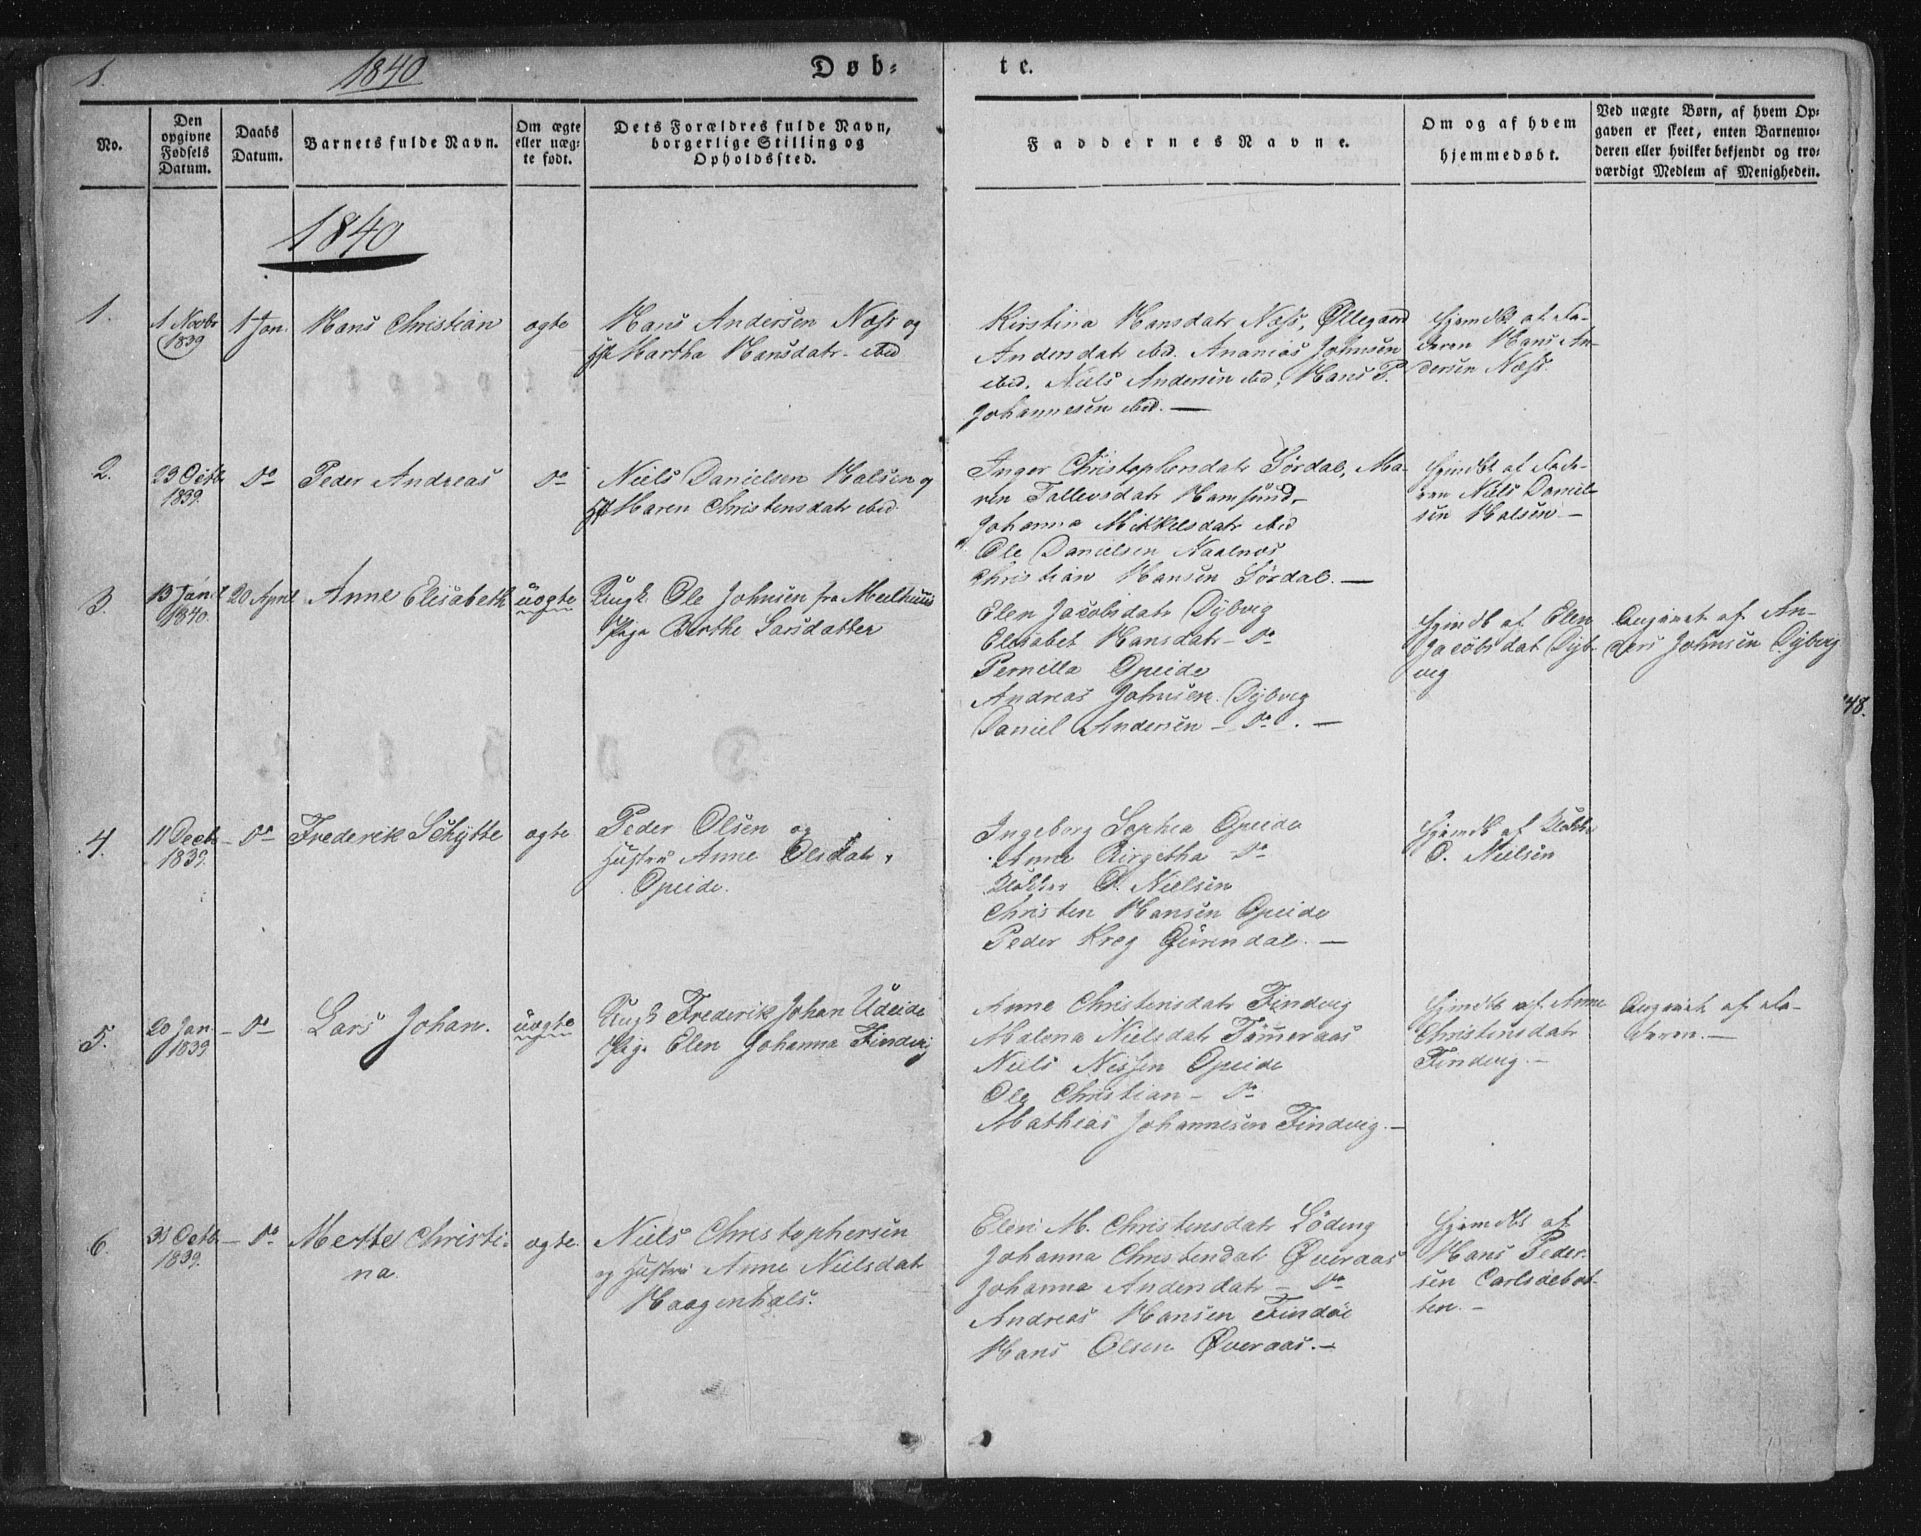 1.
1840
Døb-
te.
No.
Den
opgivne
Fødsels
Datum.
Daabs
Datum.
Barnets fulde Navn.
Om ægte
eller uæg-
te født.
Dets Forældres fulde Navn,
borgerlige Stilling og
Opholdssted.
Faddernes Navne.
Om og af hvem
hjemmedøbt.
Ved uægte Børn, af hvem Op-
gaven er skeet, enten Barnemo-
deren eller hvilket bekjendt og tro-
værdigt Medlem af Menigheden.
1840
1.
1 Novbr
1839
1 Jan.
Hans Christian
ægte
Hans Andersen Næss og
Martha Hansdatr ibid
Kirstina Hansdatr Næss, Øllegaard
Andersdatr ibid. Ananias Johnsen
ibid. Niels Andersen ibid, Hans P.
Johannesen ibid. —
Hjemdbt af Fa-
deren Hans An-
dersen Næss.
2.
23 Octb
1839.
Do
Peder Andreas
Do
Niels Danielsen Halsen og
Maren Christensdatr ibid.
Inger Christophersdatr Sørdal, Ma-
ren Tollevsdatr Hamsund,
Johanna Mikkelsdatr ibid
Ole Danielsen Naalnæs
Christian Hansen Sørdal. —
Hjemdbt af Fade-
ren Niels Daniel-
sen Halsen. —
3.
13 Jan.
1840.
20 April
Anne Elisabeth
uægte
Ungk. Ole Johnsen fra Meelhuus
Pige Berthe Larsdatter
Elen Jacobsdatr Dybvig
Elisabet Hansdatr — Do
Pernella Opeide
Andreas Johnsen Dybvig
Daniel Andersen — Do. —
Hjemdb af Elen
Jacobsdat Dyb-
vig
Angivet af An-
ders Johnsen Dybvig
48.
4.
11 Decb
1839.
— Do
Frederik Schytte
ægte
Peder Olsen og
Hustru Anne Olsdatr,
Opeide.
Ingeborg Sophia Opeide
Anne Birgitha — Do
O. Nielsen
Christen Hansen Opeide
Peder Kreg
Hjemdb af
O. Nielsen
5.
20 Jan.
1839
— Do
Lars Johan.
uægte
Ungk Frederik Johan Udeide
Pige Elen Johanna Findvig
Anne Christensdatr Findvig
Malena Nielsdatr Tømeraas
Niels Nissen Opeide
Ole Christian — Do
Mathias Johannesen Findvig. —
Hjemdbt af Anne
Christensdatr
Findvig. —
Angivet af Fa-
deren. —
6.
31 Octb.
1839.
— Do
Mette Christi-
na.
ægte.
Niels Christophersen
og Hustru Anne Nielsdatr
Haagenhals.
Elen M. Christensdatr Løding
Johanna Christendatr Øveraas
Johanna Andersdatr — Do
Andreas Hansen Findøe
Hans Olsen Øveraas. —
Hjemdbt af
Hans Peder-
sen Carlsøebot-
ten. —